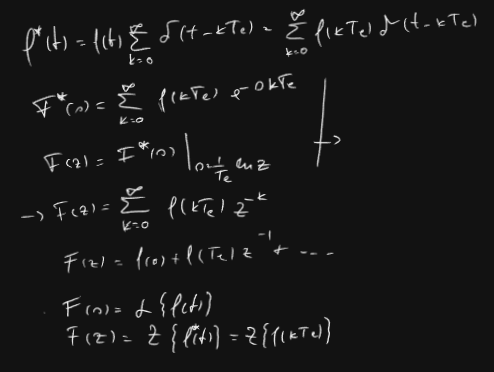 f*(t) = f(t) ∑_{k=0}^{∞} δ(t - kTe) = ∑_{k=0}^{∞} f(kTe) δ(t - kTe)
F*(s) = ∑_{k=0}^{∞} f(kTe) e^{-skTe}
F(z) = F*(s) |_{s = 1/Te ln z}
→ F(z) = ∑_{k=0}^{∞} f(kTe) z^{-k}
F(z) = f(0) + f(Te) z^{-1} + ....
F(s) = L{f(t)}
F(z) = Z{f*(t)} = Z{f(kTe)}